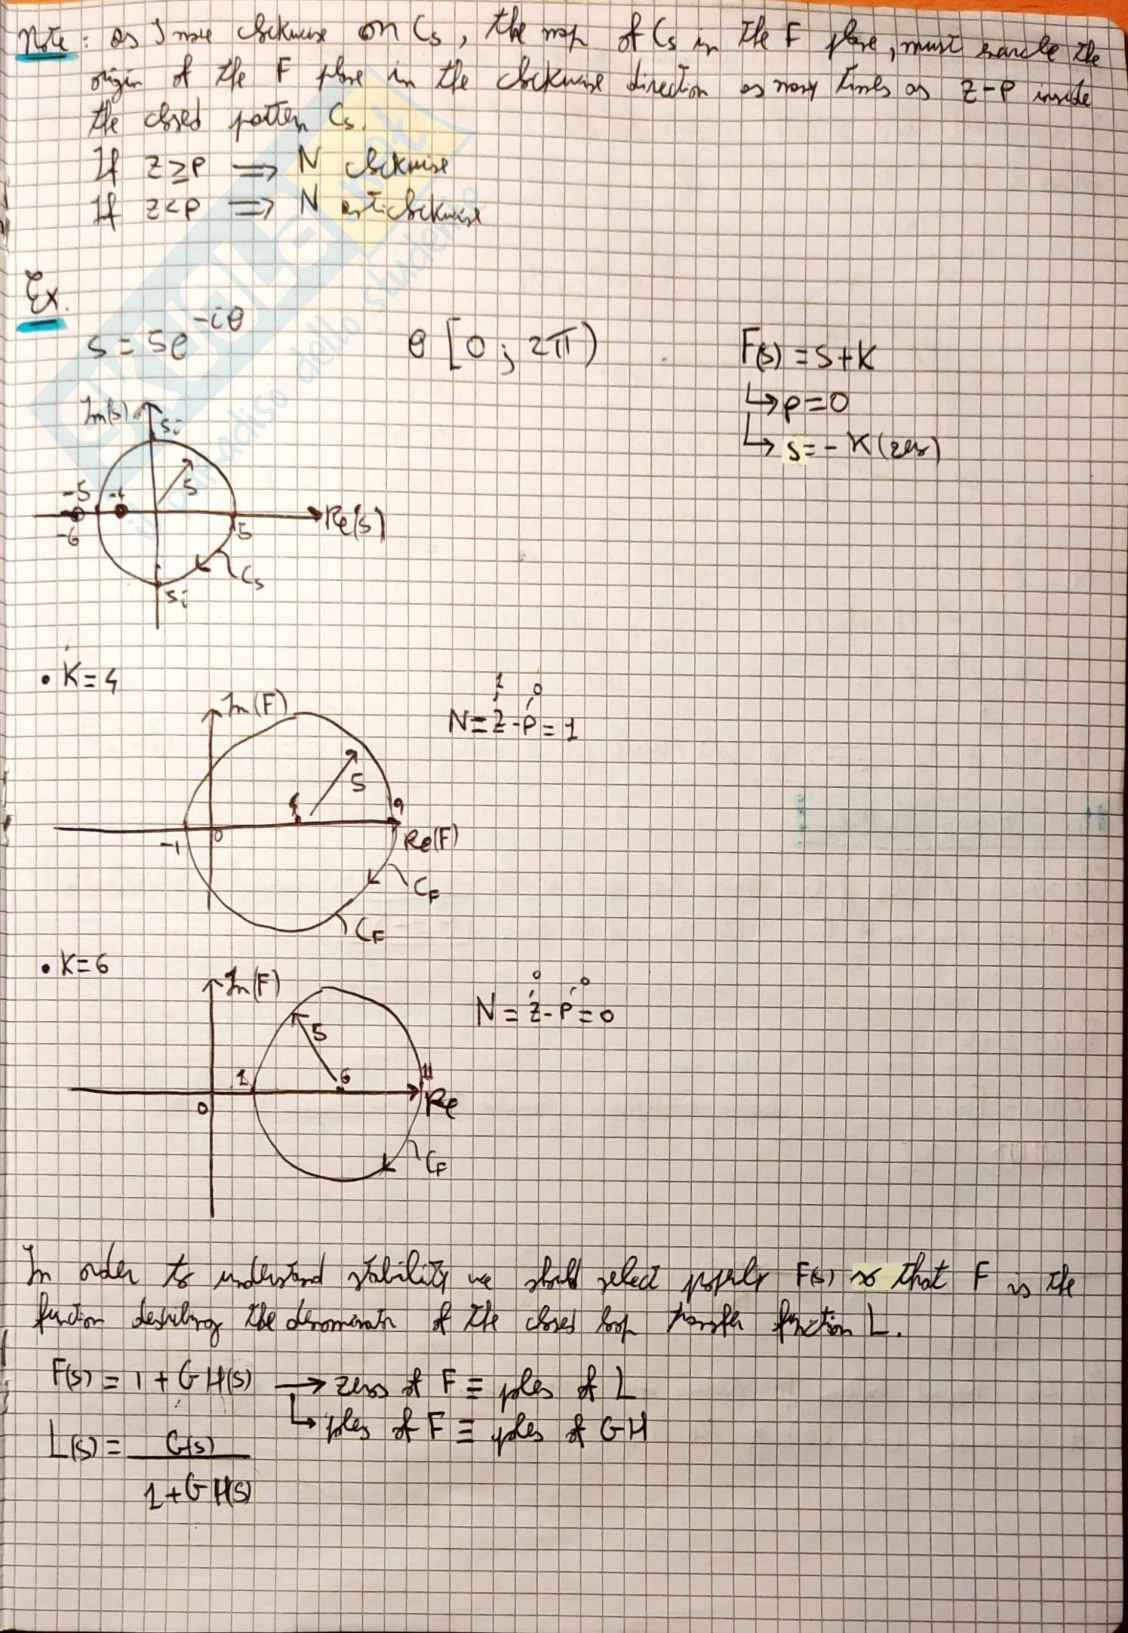 Note: as I move clockwise on Cs, the map of Cs in the F plane, must encircle the
origin of the F plane in the clockwise direction as many times as Z-P inside
the closed pattern Cs.
If Z≥P ⟹ N clockwise
If Z<P ⟹ N anticlockwise
Ex.
s = 5e^-iθ θ [0; 2π) F(s) = s+K
↳ P=0
↳ s=-K (zero)
Im(s) 5i
5
-5 -4
-6 5 Re(s)
Cs
5i
• K=4
Im(F) 1 0
N=Z-P=1
5
4 9
-1 0 Re(F)
CF
CF
• K=6
Im(F) 0 0
N=Z-P=0
5
1 6 11
0 Re
CF
In order to understand stability we shall select properly F(s) so that F is the
function describing the denominator of the closed loop transfer function L.
F(s) = 1+GH(s) → zeros of F ≡ poles of L
↳ poles of F ≡ poles of GH
L(s) = G(s)
1+GH(s)